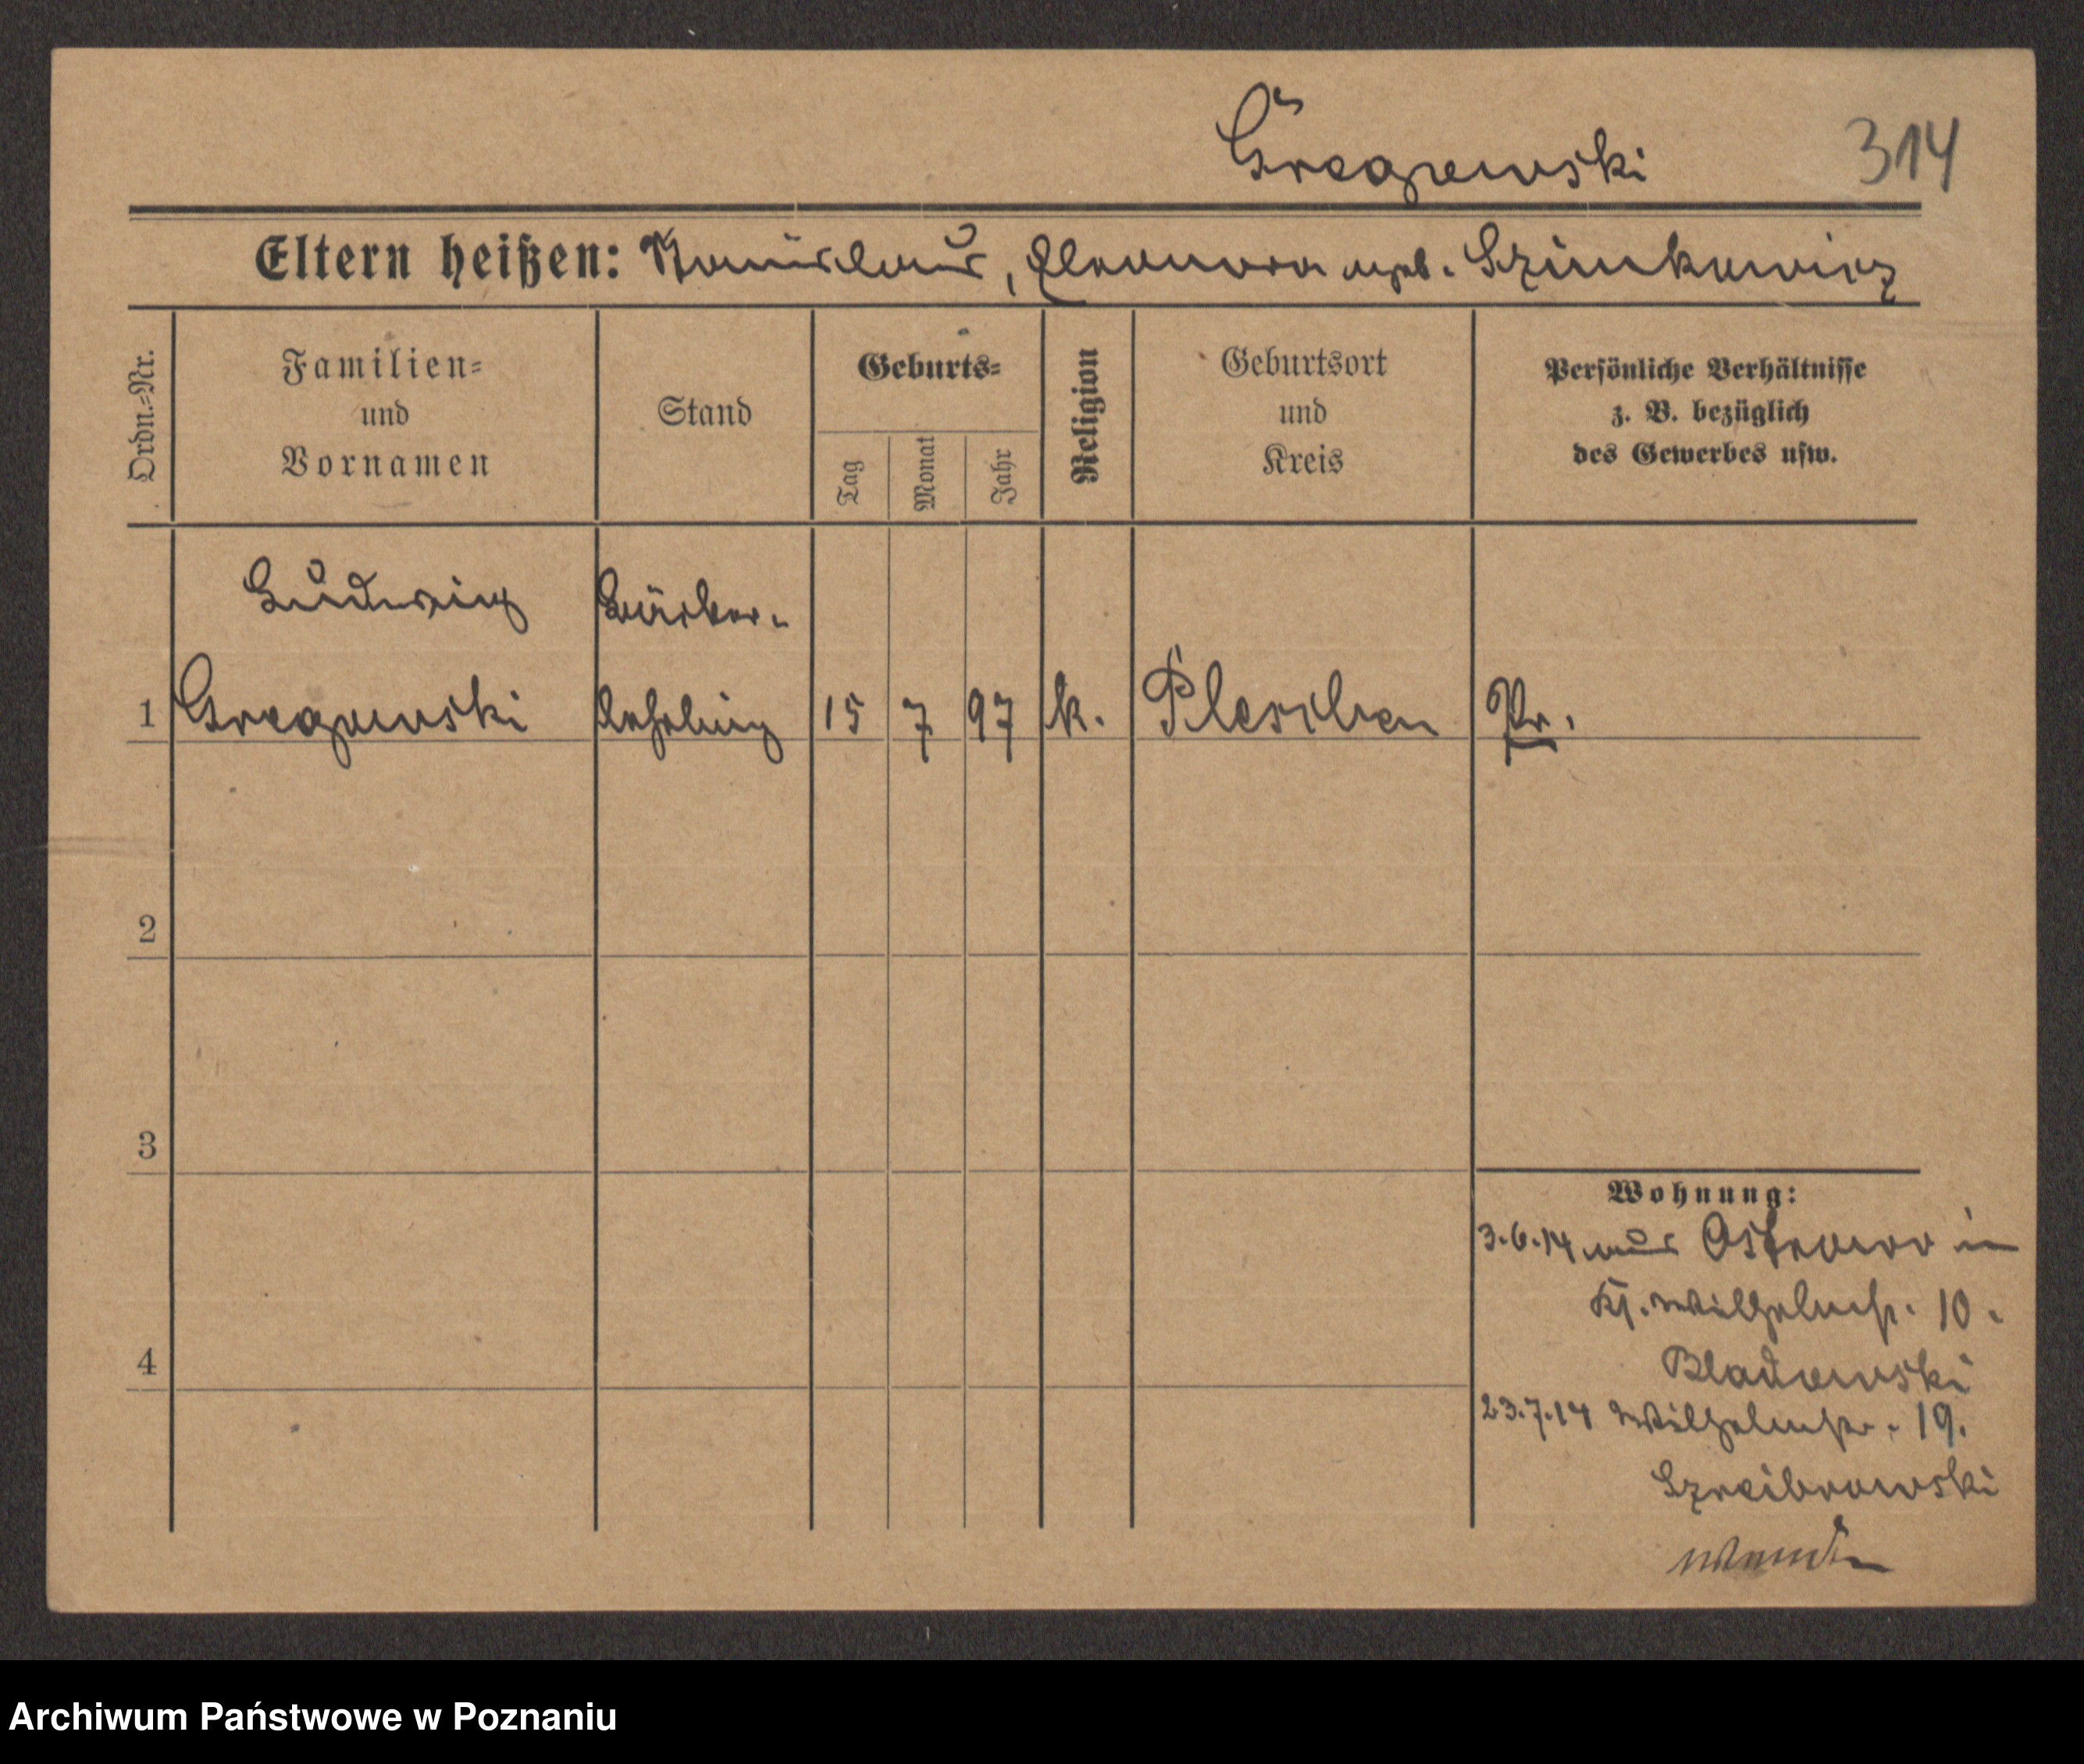 Gregorowski 314
Eltern heißen: Stanislaus, Eleonora geb. Szimkowicz
Ordn.-Nr.
Familien-
und
Vornamen
Stand
Geburts-
Tag
Monat
Jahr
Religion
Geburtsort
und
Kreis
Persönliche Verhältnisse
z. B. bezüglich
des Gewerbes usw.
Ludwig
lehrling
1 15 7 97 k. Pleschen Pr.
2
3
4
Wohnung:
3.6.14 aus Ostrowo in
Kj. Wilhelmstr. 10.
23.7.14 Wilhelmstr. 19.
wenden
Archiwum Państwowe w Poznaniu